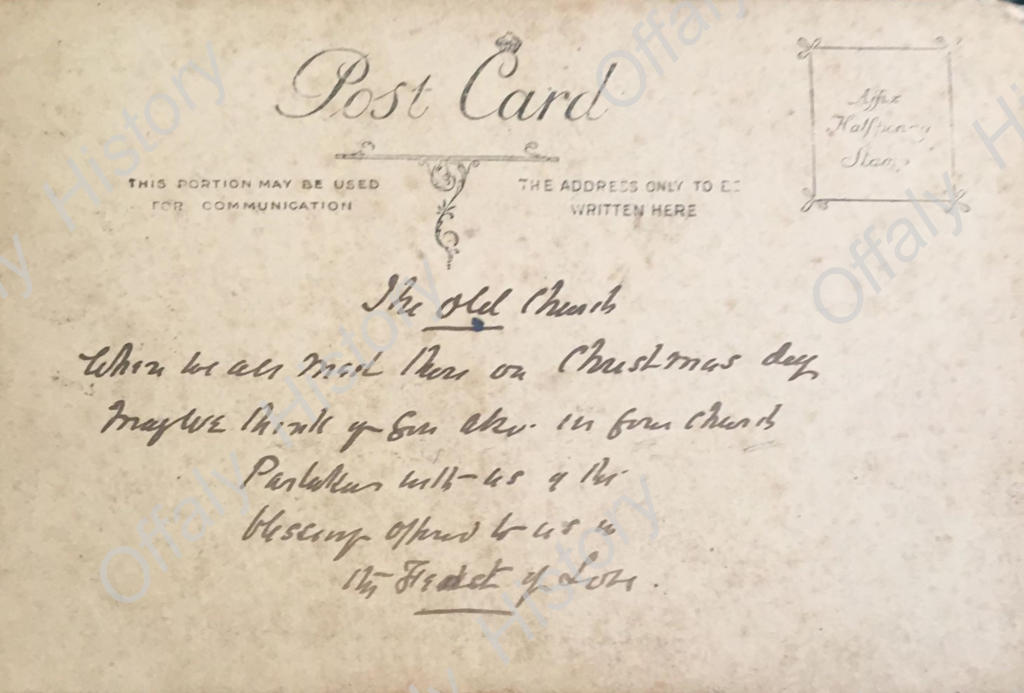 Post Card
Affix
Halfpenny
Stamp
THIS PORTION MAY BE USED
FOR COMMUNICATION
THE ADDRESS ONLY TO BE
WRITTEN HERE
The old Church
When we all meet there on Christmas day
May we think of you also in your church
Partakers with us of the
blessings offered to us in
the Feast of Love.
Offaly History